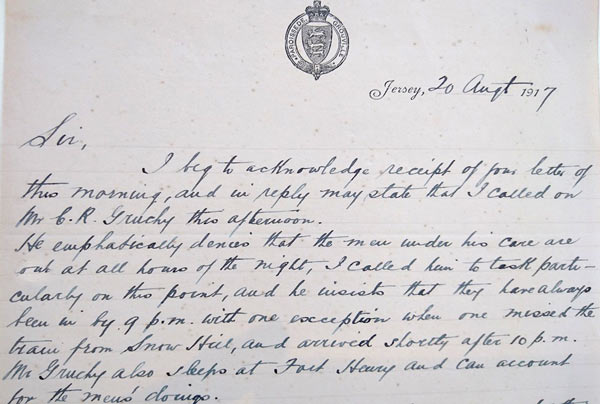 PAROISSE DE GROUVILLE
Jersey, 20 Augt 1917
Sir,
I beg to acknowledge receipt of your letter of
this morning, and in reply may state that I called on
Mr C. R. Gruchy this afternoon.
He emphatically denies that the men under his care are
out at all hours of the night, I called him to task parti-
cularly on this point, and he insists that they have always
been in by 9 p.m. with one exception when one missed the
train from Snow Hill, and arrived shortly after 10 p.m.
Mr Gruchy also sleeps at Fort Henry and can account
for the men's doings.